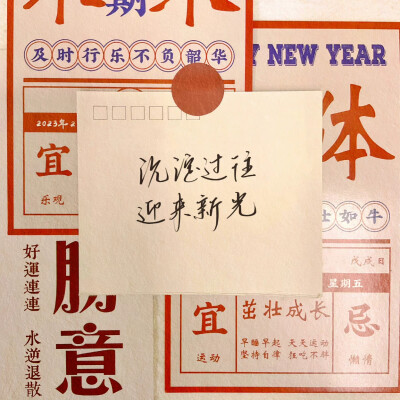 期
及时行乐不负韶华
NEW YEAR
2023年2
宜
乐观
体
沉淀过往
迎来新光
壮如牛
戊戌日
星期五
好運連連
水逆退散
勝意
宜
运动
茁壮成长
早睡早起 天天运动
坚持自律 狂吃不胖
忌
懒惰